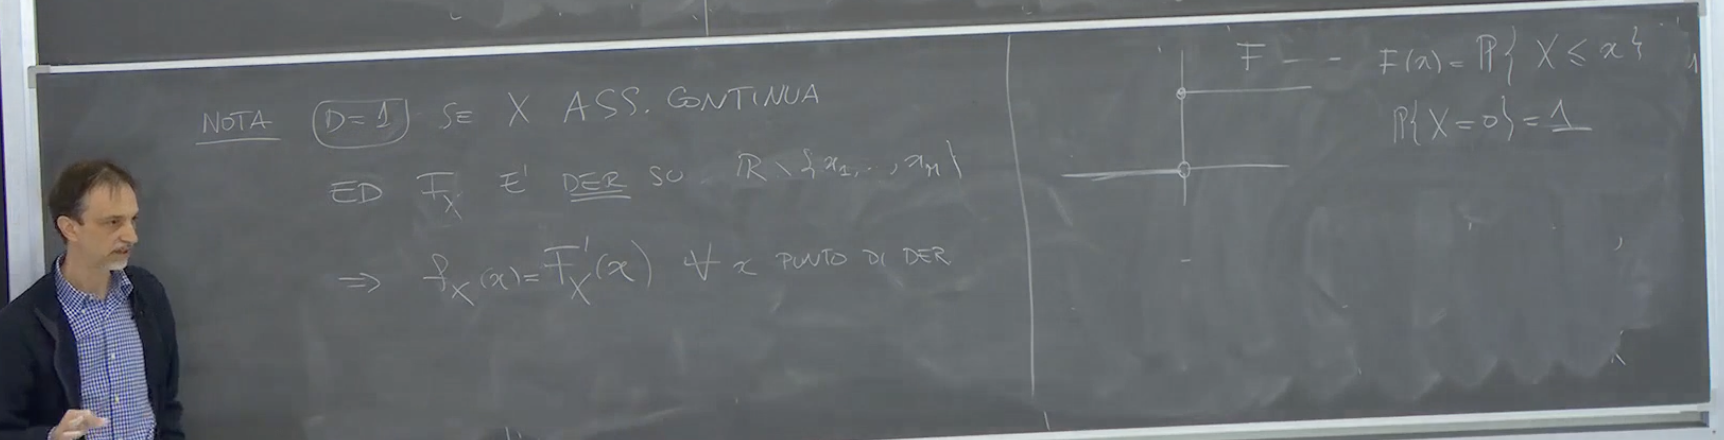 NOTA D=1 SE X ASS. CONTINUA
ED F_X E' DER SU ℝ \ {x_1, .., x_n}
⇒ f_X(x) = F'_X(x) ∀ x PUNTO DI DER
F -- F(x) = ℙ{X ≤ x}
ℙ{X=0} = 1